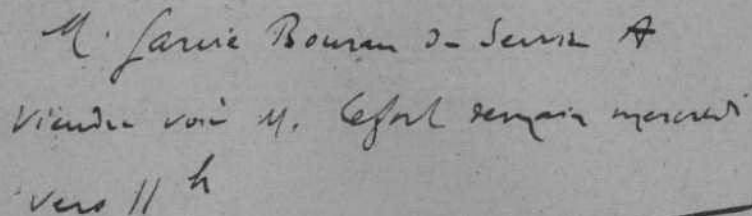 M. Garcie Bouran du Service A
viendra voir M. Lefort demain mercredi
vers 11 h